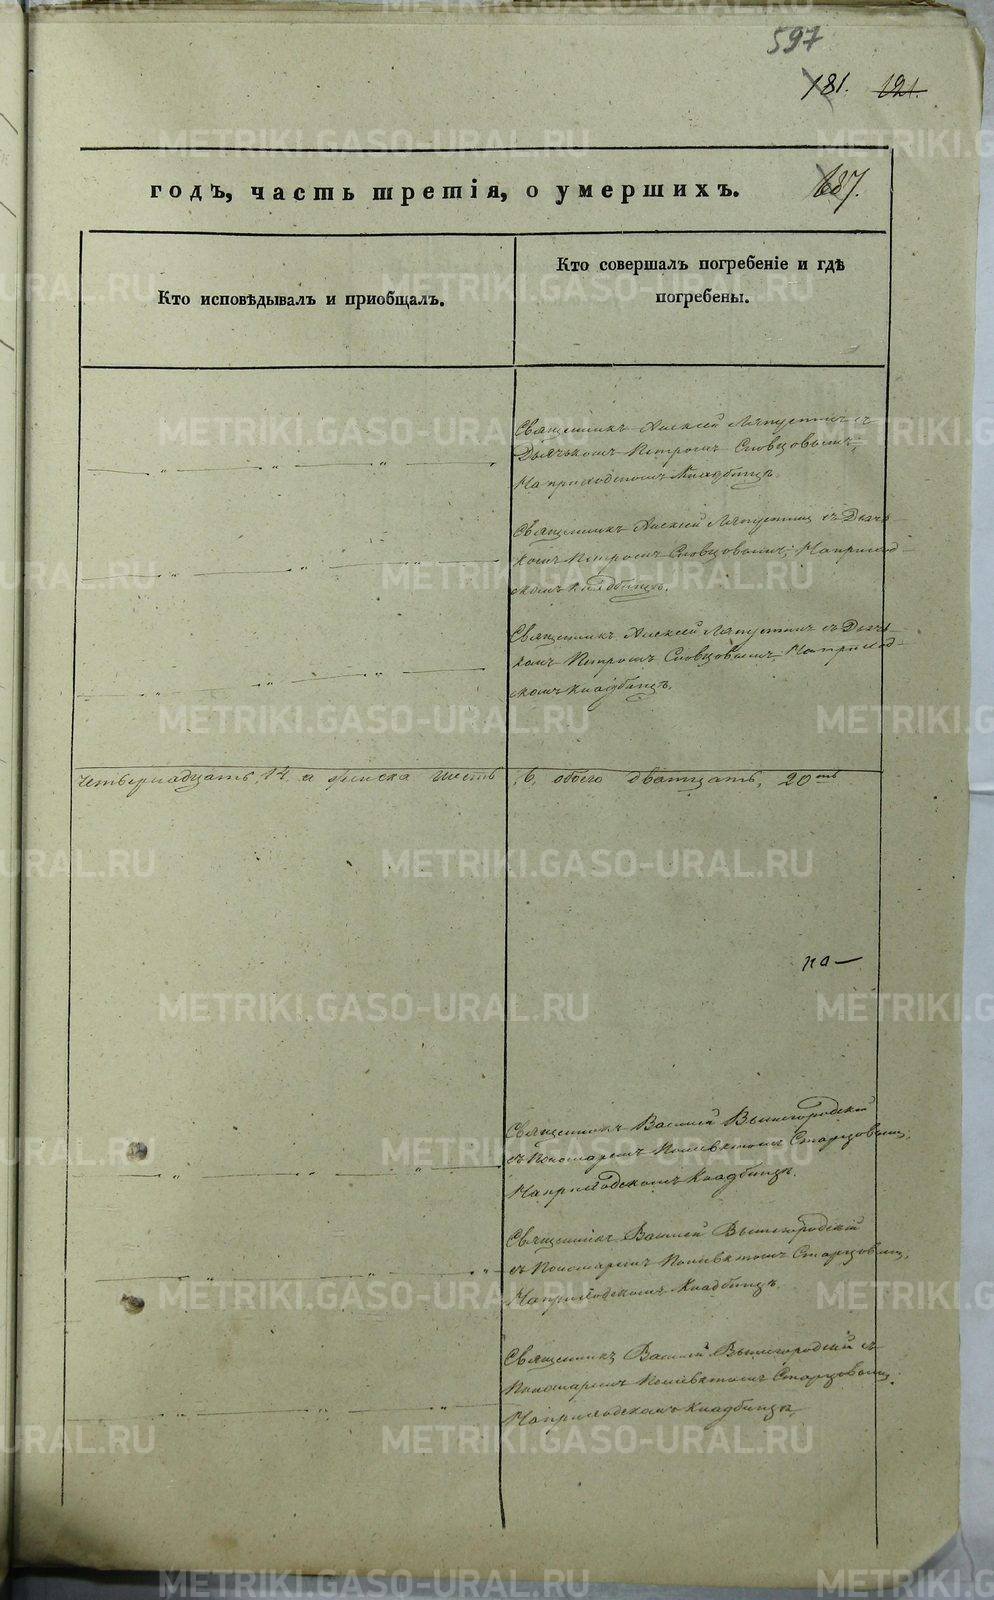 597
181. 121.
годъ, часть третія, о умершихъ.
687.
Кто исповѣдывалъ и приобщалъ.
Кто совершалъ погребеніе и гдѣ
погребены.
Священникъ Алексѣй Ляпустинъ съ
Дьячькомъ Петромъ Словцовымъ;
На приходскомъ Кладбищѣ.
Священникъ Алексѣй Ляпустинъ съ Дьячь-
комъ Петромъ Словцовымъ; На приход-
скомъ кладбищѣ.
Священникъ Алексѣй Ляпустинъ съ Дьячь-
комъ Петромъ Словцовымъ; На приход-
скомъ кладбищѣ.
четвернадцать, 14. а женска шесть 6, обоего дватцать, 20ть
по—
Священникъ Василій Вышегородскій
съ Пономаремъ Старцовымъ,
На приходскомъ Кладбищѣ.
Священникъ Василій Вышегородскій
съ Пономаремъ Старцовымъ,
На приходскомъ Кладбищѣ.
Священникъ Василій Вышегородскій съ
Пономаремъ Старцовымъ.
На приходскомъ Кладбищѣ.
METRIKI.GASO-URAL.RU